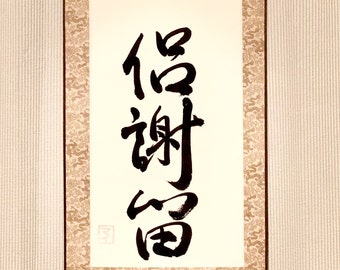 侶
謝
留